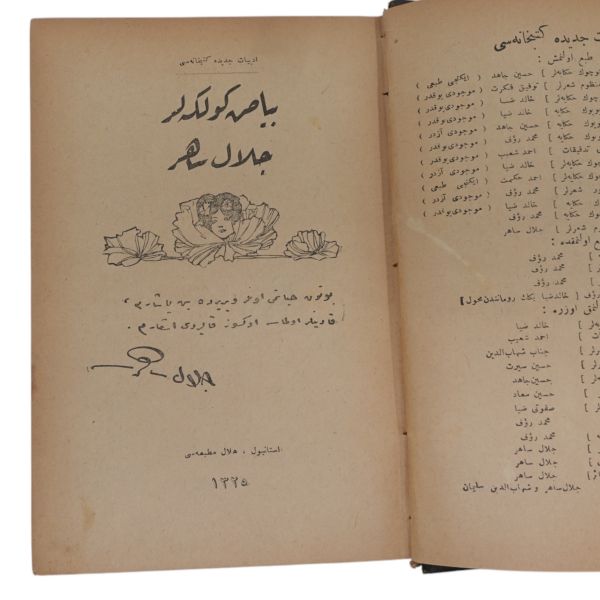 ادبيات جديده كتبخانه‌سى
بياض كولكه‌لر
جلال ساهر
بوتون حياتمى اونلر ويريرده بن ياشارم ،
قادينلر اولماسه اوكسوز قاليردى اشعارم .
جلال ساهر
استانبول ، هلال مطبعه‌سى
١٣٢٥
ات جديده كتبخانه‌سى
طبع اولنمش :
كوچوك حكايه‌لر ] حسين جاهد ( ايكنجى طبعى )
منظوم شعرلر ] توفيق فكرت ( موجودى يوقدر )
كوچوك حكايه‌لر ] خالد ضيا ( موجودى يوقدر )
بويوك حكايه ] خالد ضيا ( موجودى يوقدر )
بويوك حكايه ] حسين جاهد ( موجودى يوقدر )
بويوك حكايه ] محمد رؤف ( موجودى آزدر )
تدقيقات ] احمد شعيب ( موجودى يوقدر )
كوچوك حكايه‌لر ] خالد ضيا ( موجودى آزدر )
حكايه‌لر ] احمد حكمت ( ايكنجى طبعى )
شعرلر ] محمد رؤف ( موجودى آزدر )
حكايه ] خالد ضيا ( موجودى يوقدر )
حكايه ] محمد رؤف
شعرلر ] جلال ساهر
اولنمقده :
] محمد رؤف
] محمد رؤف
] محمد رؤف
رؤف [ خالد ضيا بكك رومانندن محول ]
اوزره :
خالد ضيا
] احمد شعيب
] جناب شهاب‌الدين
] حسين سيرت
] حسين جاهد
] حسين سعاد
] صفوتى ضيا
محمد رؤف
] محمد رؤف
] جلال ساهر
] جلال ساهر
] جلال ساهر
جلال ساهر و شهاب‌الدين سليمان